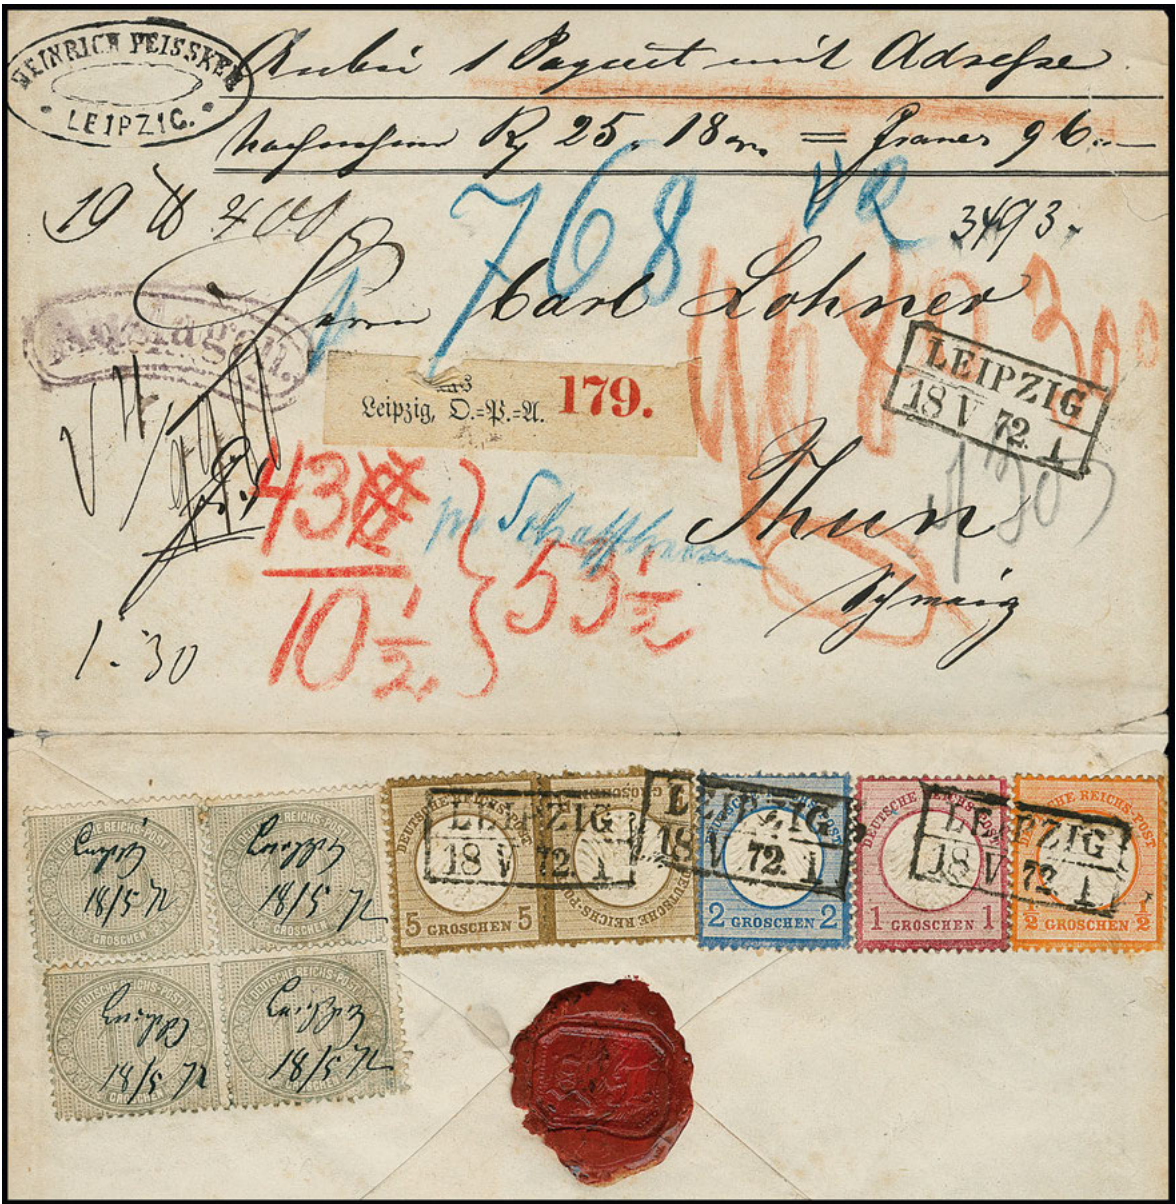 HEINRICH PEISSKER
LEIPZIG.
Anbei 1 Paquet mit Adresse
Nachnahme 25. 18 = Francs 96.
19 400
768
3493.
Herrn Carl Lohner
Auslagen.
Leipzig, O.=P.=A. 179.
LEIPZIG
18 V 72. 1
43
10 1/2 } 53 1/2
p. Schaffhausen
Thun
Schweiz
1.30
DEUTSCHE REICHS-POST
10
GROSCHEN
Leipzig
18/5 72
DEUTSCHE REICHS-POST
10
GROSCHEN
Leipzig
18/5 72
DEUTSCHE REICHS-POST
5 GROSCHEN 5
DEUTSCHE REICHS-POST
GROSCHEN
LEIPZIG
18 V 72. 1
DEUTSCHE REICHS-POST
2 GROSCHEN 2
LEIPZIG
18 V 72. 1
DEUTSCHE REICHS-POST
1 GROSCHEN 1
DEUTSCHE REICHS-POST
1/2 GROSCHEN 1/2
LEIPZIG
18 V 72. 1
DEUTSCHE REICHS-POST
10
GROSCHEN
Leipzig
18/5 72
DEUTSCHE REICHS-POST
10
GROSCHEN
Leipzig
18/5 72